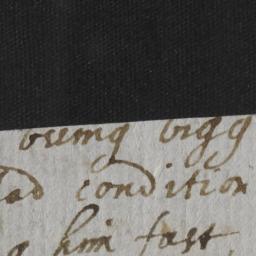 being bigg
ad condition
g him fast